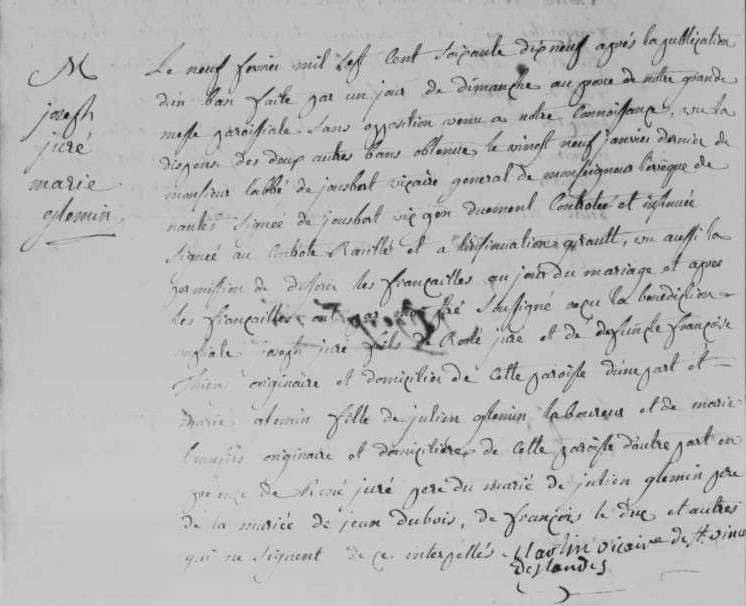 M
joseph
juré
marie
glemin
Le neuf fevrier mil sept Cent Soixante dixneuf après la publication
d'un ban faite par un jour de dimanche au prone de notre grande
messe paroissiale Sans opposition venu a notre Connoissance, vu la
dispense des deux autres bans obtenue le vingt neuf janvier dernier de
monsieur l'abbé de jousbert vicaire general de monseigneur l'évêque de
nantes signée de jousbert vic gen duement Controlée et insinuée
signée au Controle et a l'insinuation girault, vu aussi la
permission de differer les françailles au jour du mariage et apres
les françailles ont par soussigné reçu la benediction
nuptiale joseph juré fils de René juré et de deffuncte françoise
originaire et domicilié de cette paroisse d'une part et
marie glemin fille de julien glemin laboureur et de marie
originaire et domiciliere de cette paroisse d'autre part en
presence de René juré pere du marié de julien glemin pere
de la mariée de jean dubois, de françois le duc et autres
qui ne signent de ce interpellés. vicaire de St vincent
des landes